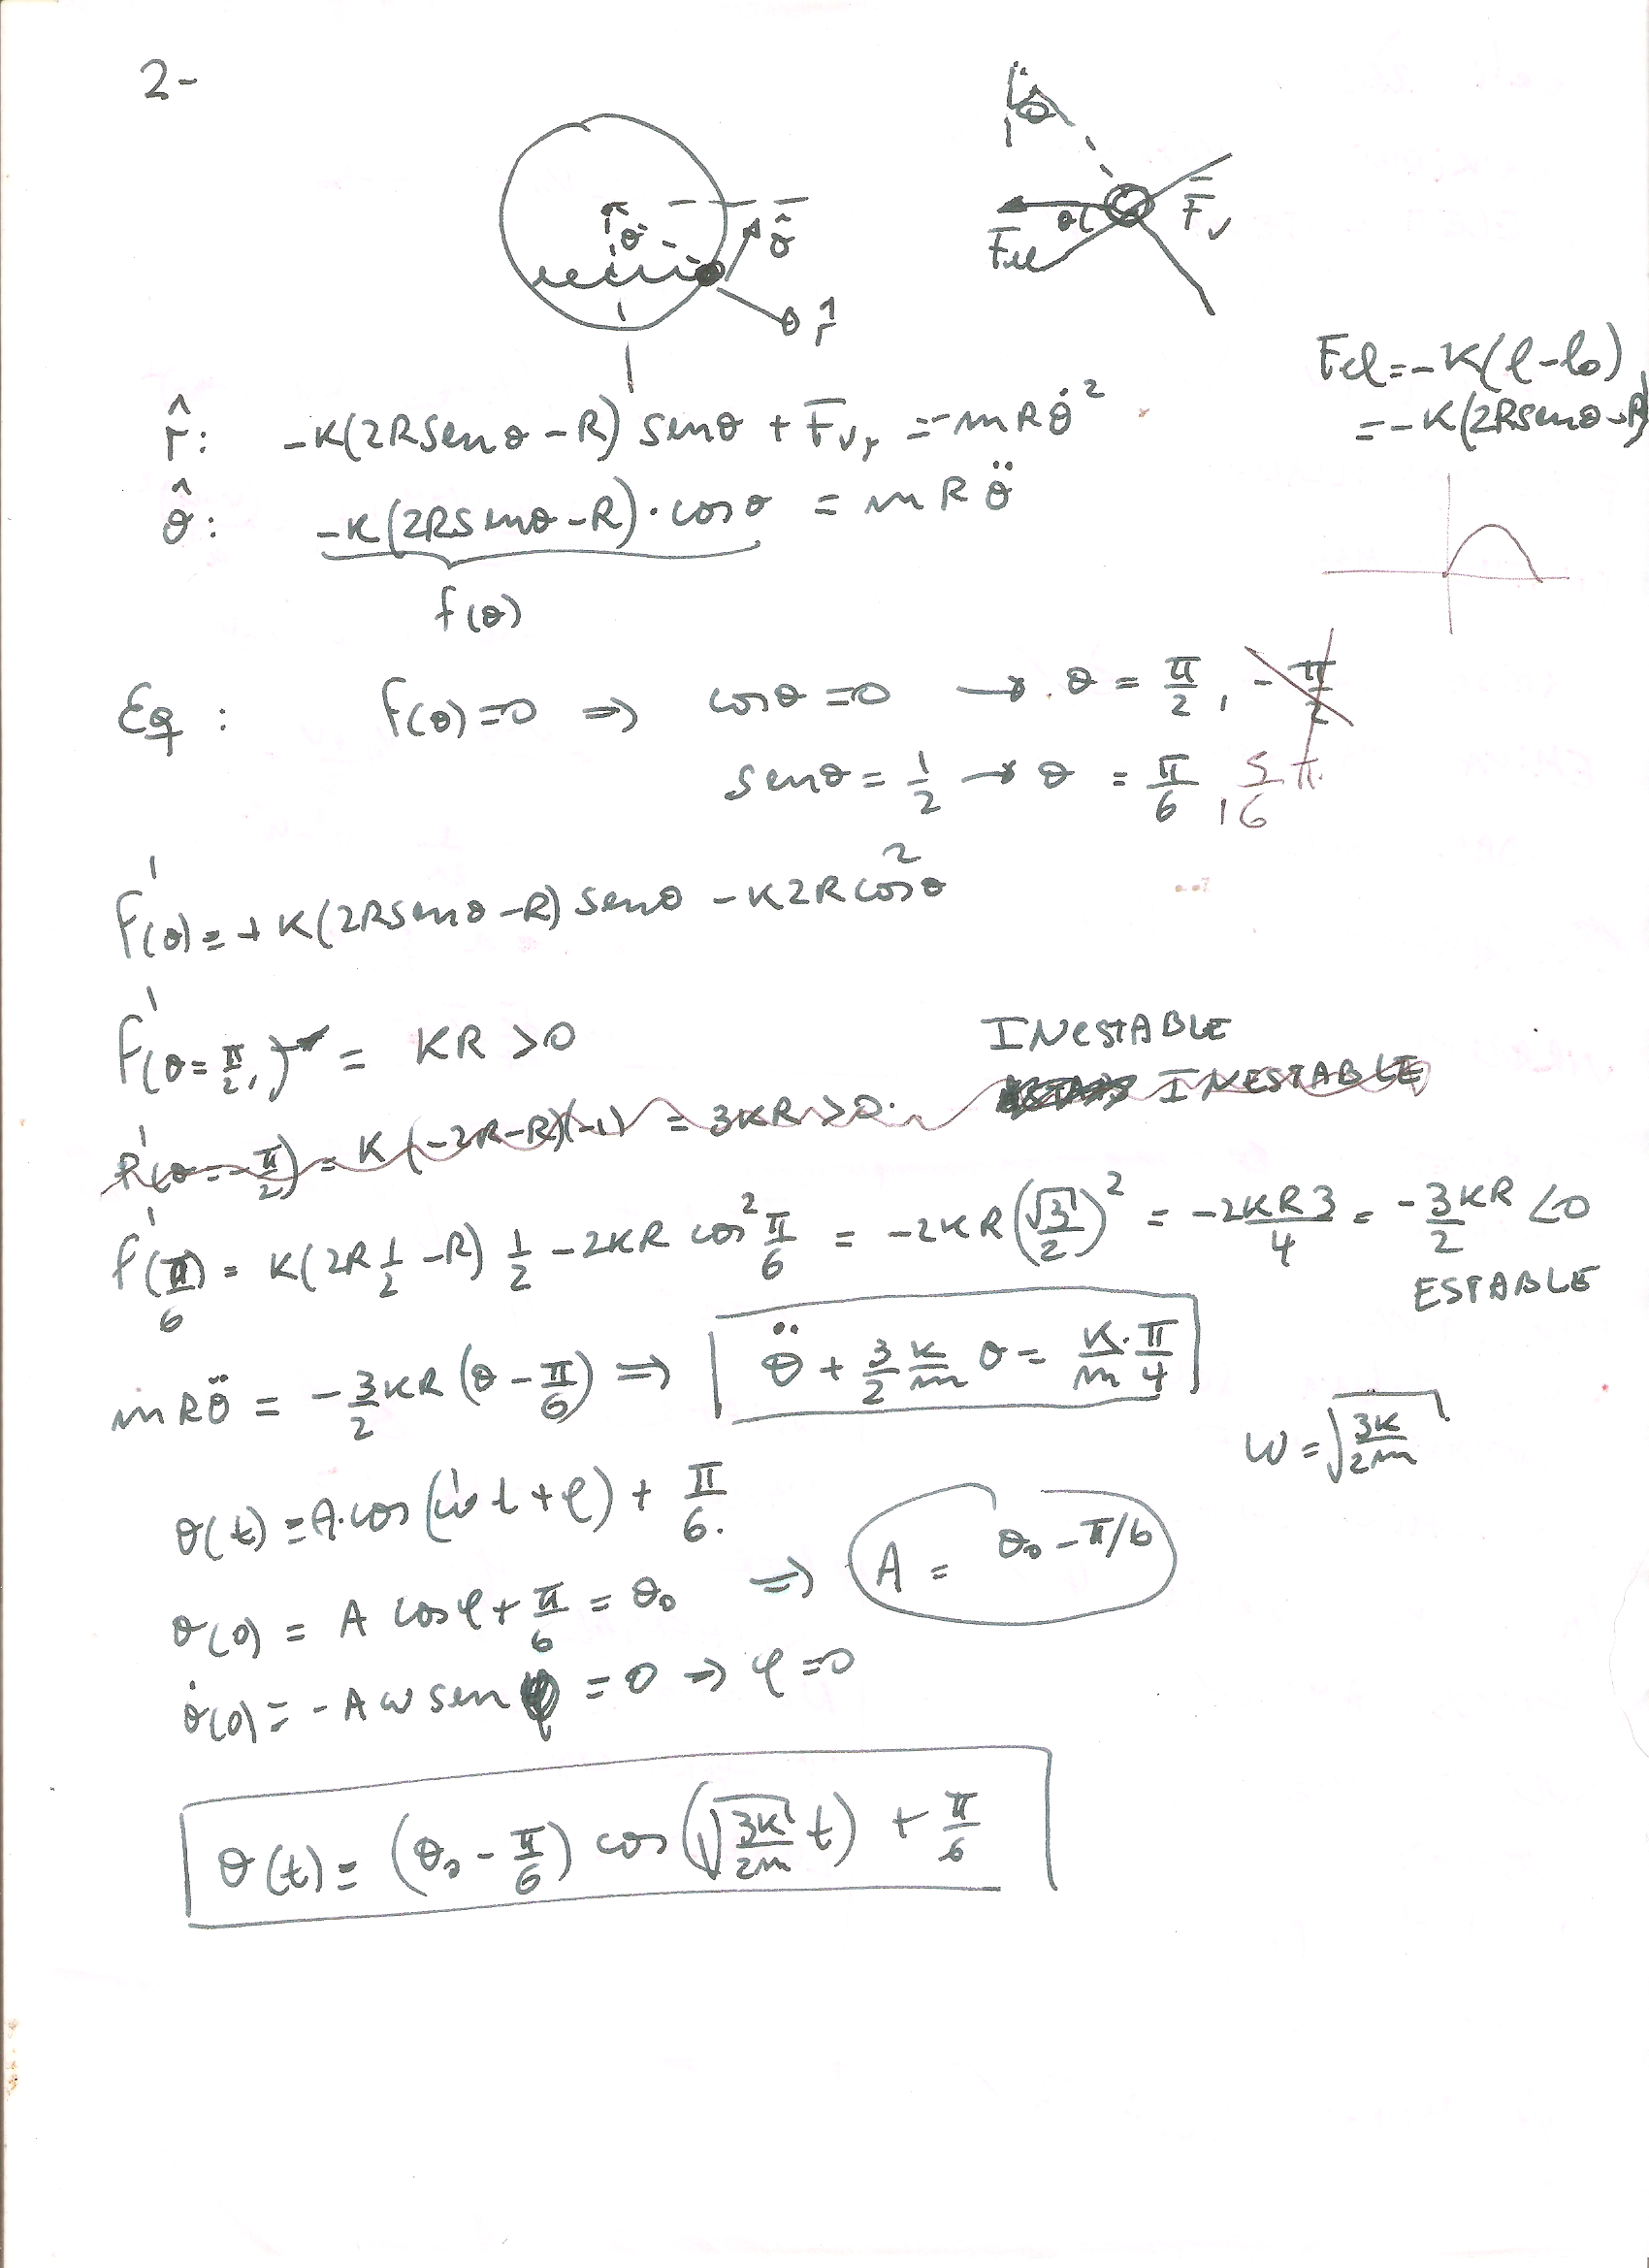 2-
θ θ̂ r̂
θ θ Fel Fv
Fel = -K(l-lo)
= -K(2R senθ - R)
r̂: -K(2R senθ - R) senθ + Fvr = -mRθ̇²
θ̂: -K(2R senθ - R)·cosθ = mRθ̈
f(θ)
Eq: f(θ)=0 ⇒ cosθ=0 → θ = π/2, -π/2
senθ = 1/2 → θ = π/6, 5/6 π
f'(θ) = +K(2R senθ - R) senθ - K2R cos²θ
f'(θ=π/2,) = KR > 0 INESTABLE
f'(θ=-π/2) = K(-2R-R)(-1) = 3KR > 0. INESTABLE
f'(π/6) = K(2R 1/2 - R) 1/2 - 2KR cos² π/6 = -2KR(√3/2)² = -2KR3/4 = -3/2 KR < 0
ESTABLE
mRθ̈ = -3/2 KR(θ - π/6) ⇒ θ̈ + 3/2 K/m θ = K/m · π/4
ω = √(3K/2m)
θ(t) = A·cos(ωt + φ) + π/6.
θ(0) = A cosφ + π/6 = θ₀ ⇒ A = θ₀ - π/6
θ̇(0) = -Aω sen φ = 0 → φ = 0
θ(t) = (θ₀ - π/6) cos(√(3K/2m) t) + π/6